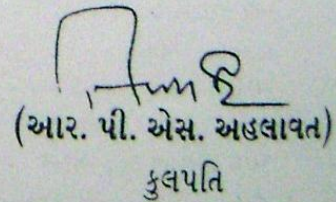 (આર. પી. એસ. અહલાવત)
કુલપતિ